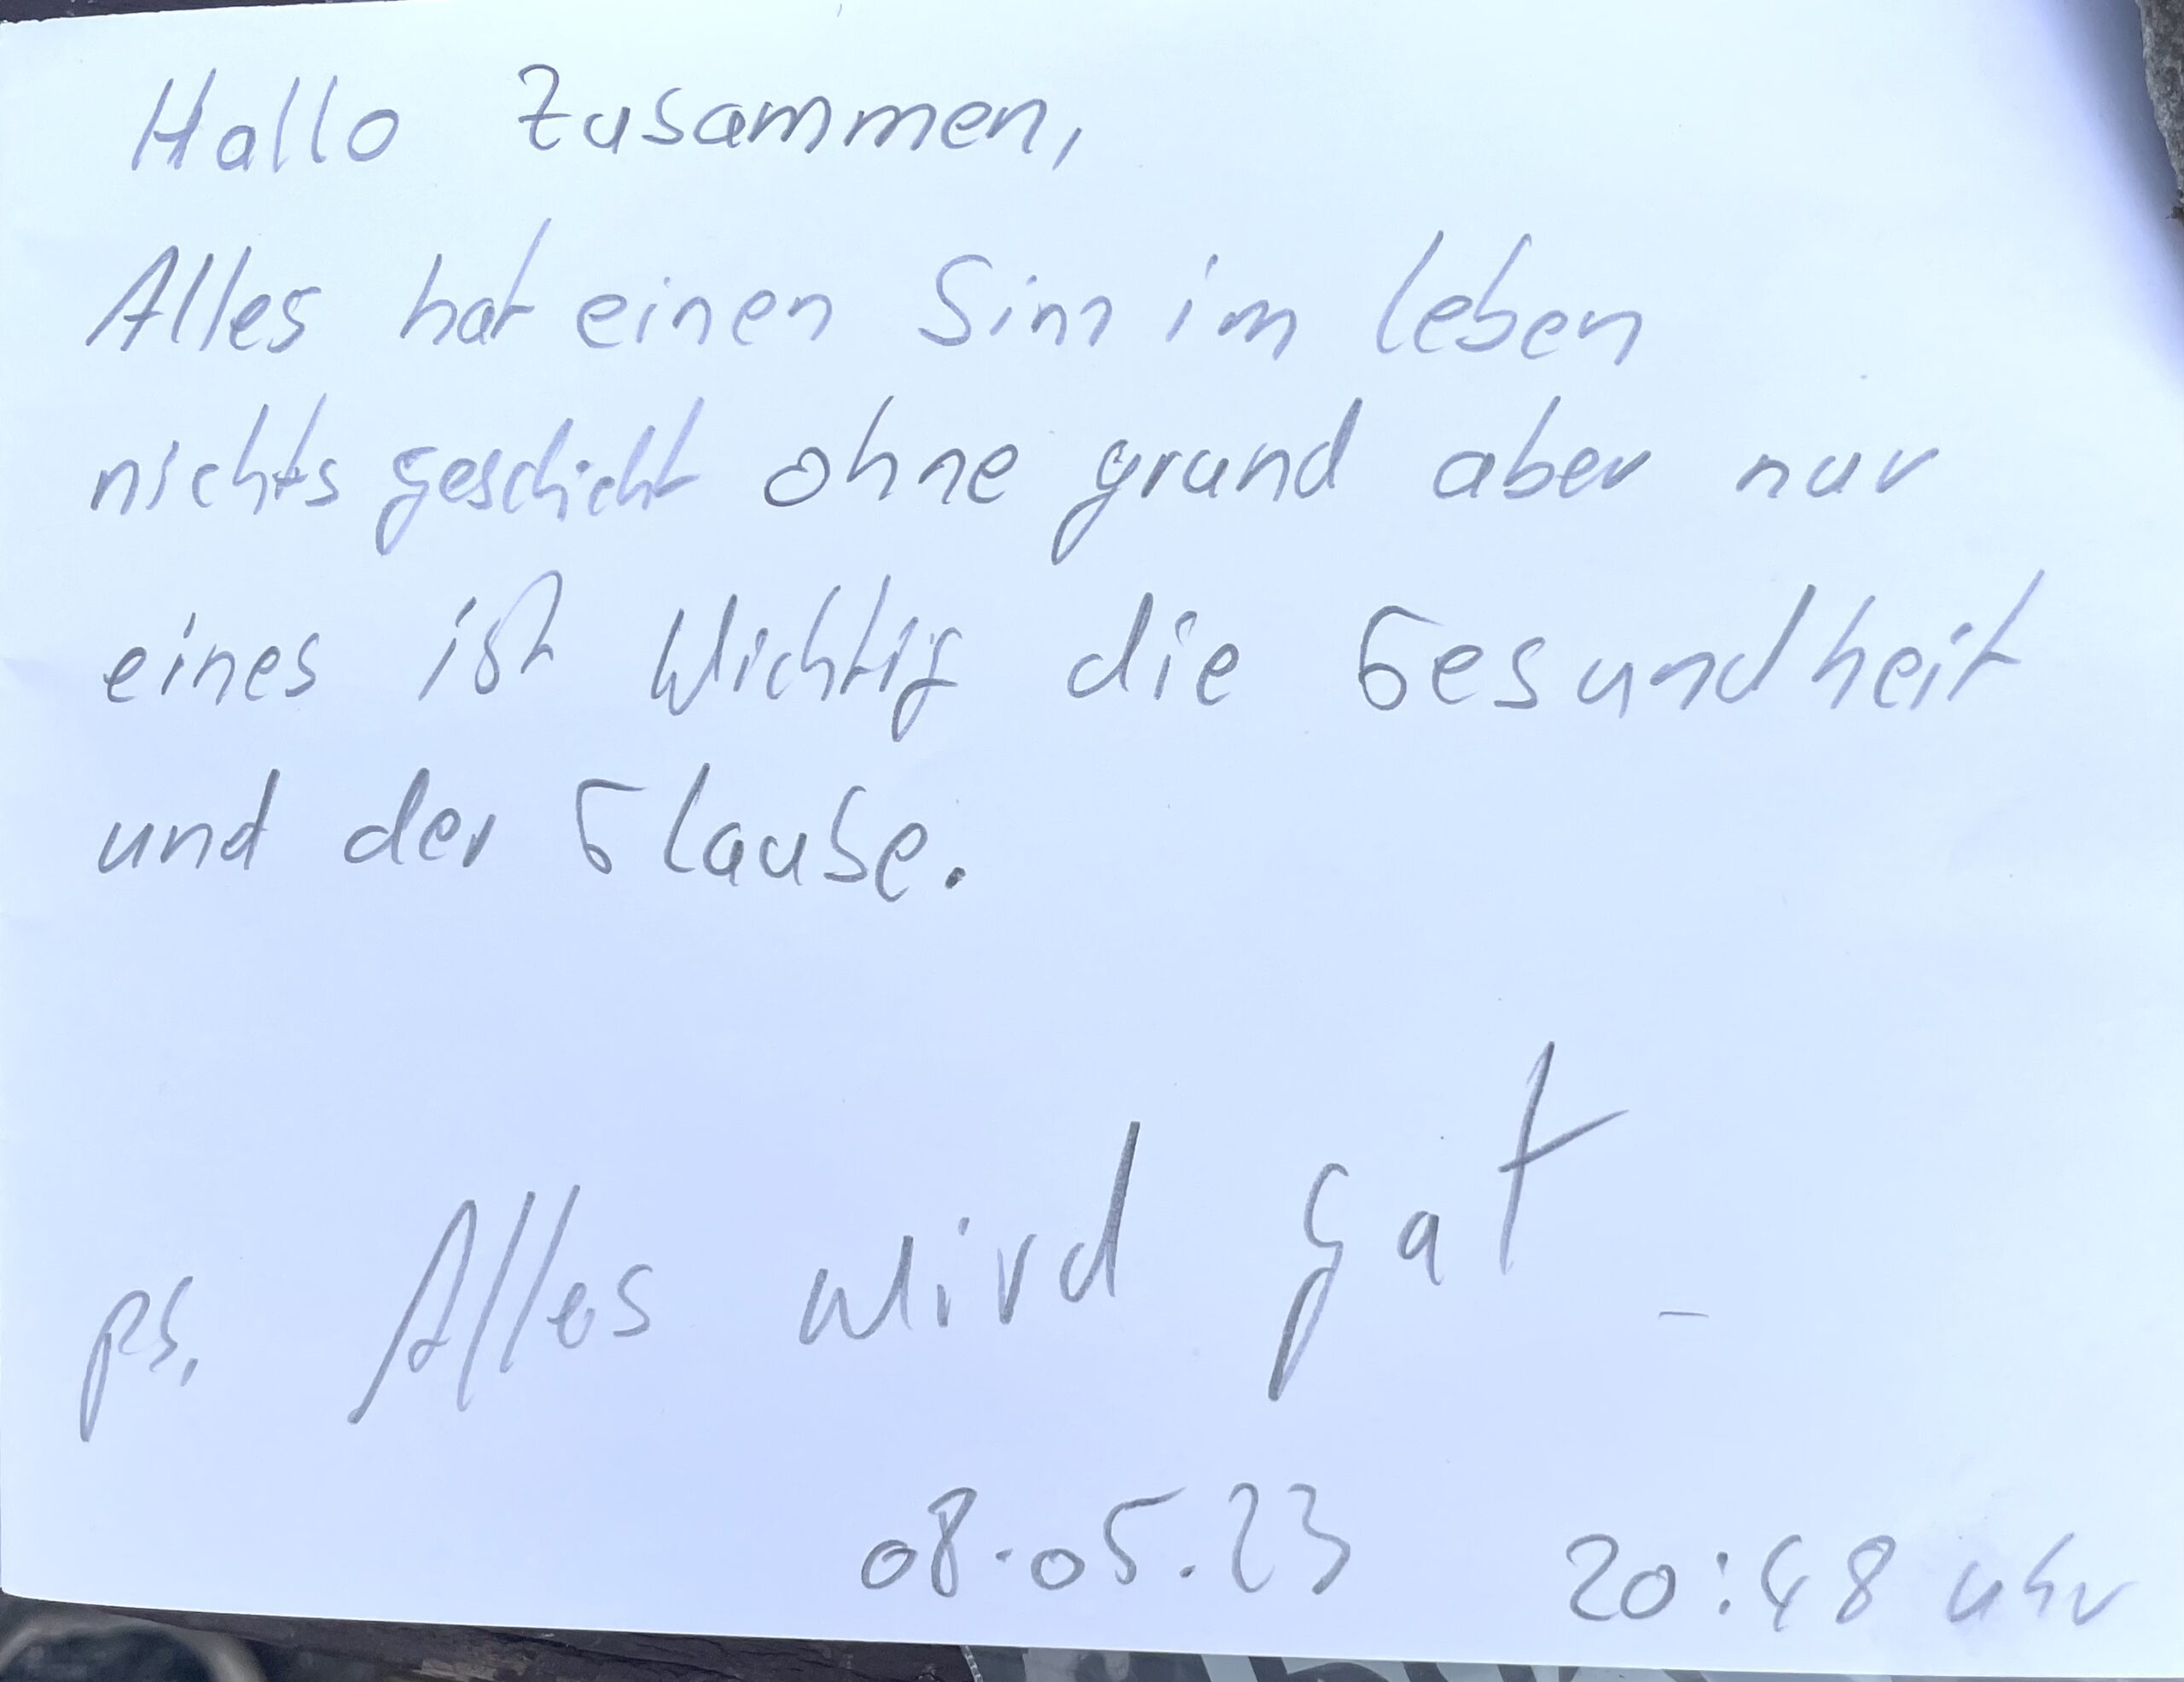 Hallo Zusammen,
Alles hat einen Sinn im leben
nichts geschieht ohne grund aber nur
eines ist Wichtig die Gesundheit
und der Glaube.
ps. Alles wird gut
08.05.23 20:48 uhr